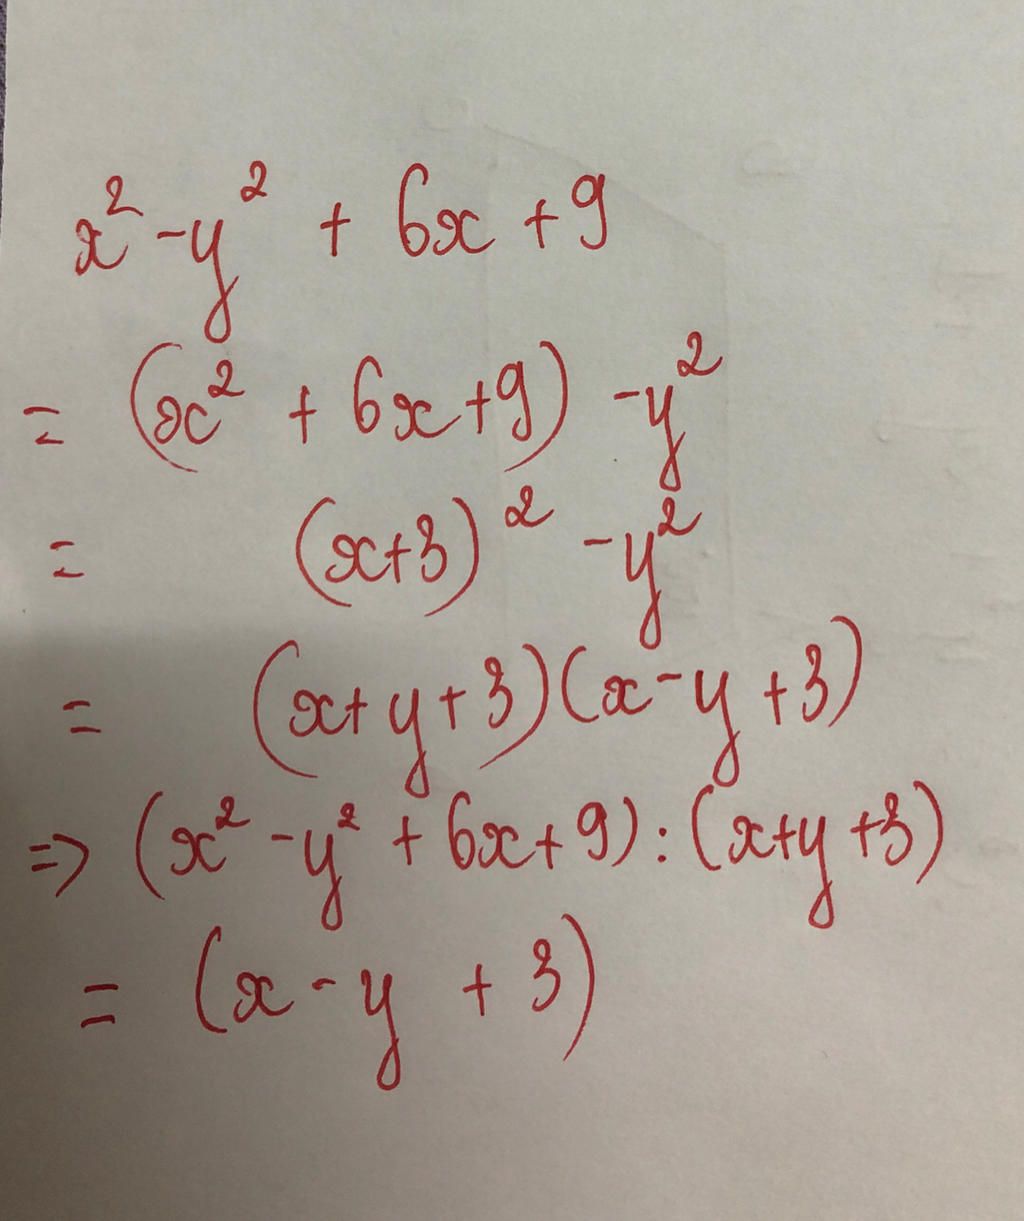 x² - y² + 6x + 9
= (x² + 6x + 9) - y²
= (x+3)² - y²
= (x + y + 3)(x - y + 3)
=> (x² - y² + 6x + 9) : (x + y + 3)
= (x - y + 3)